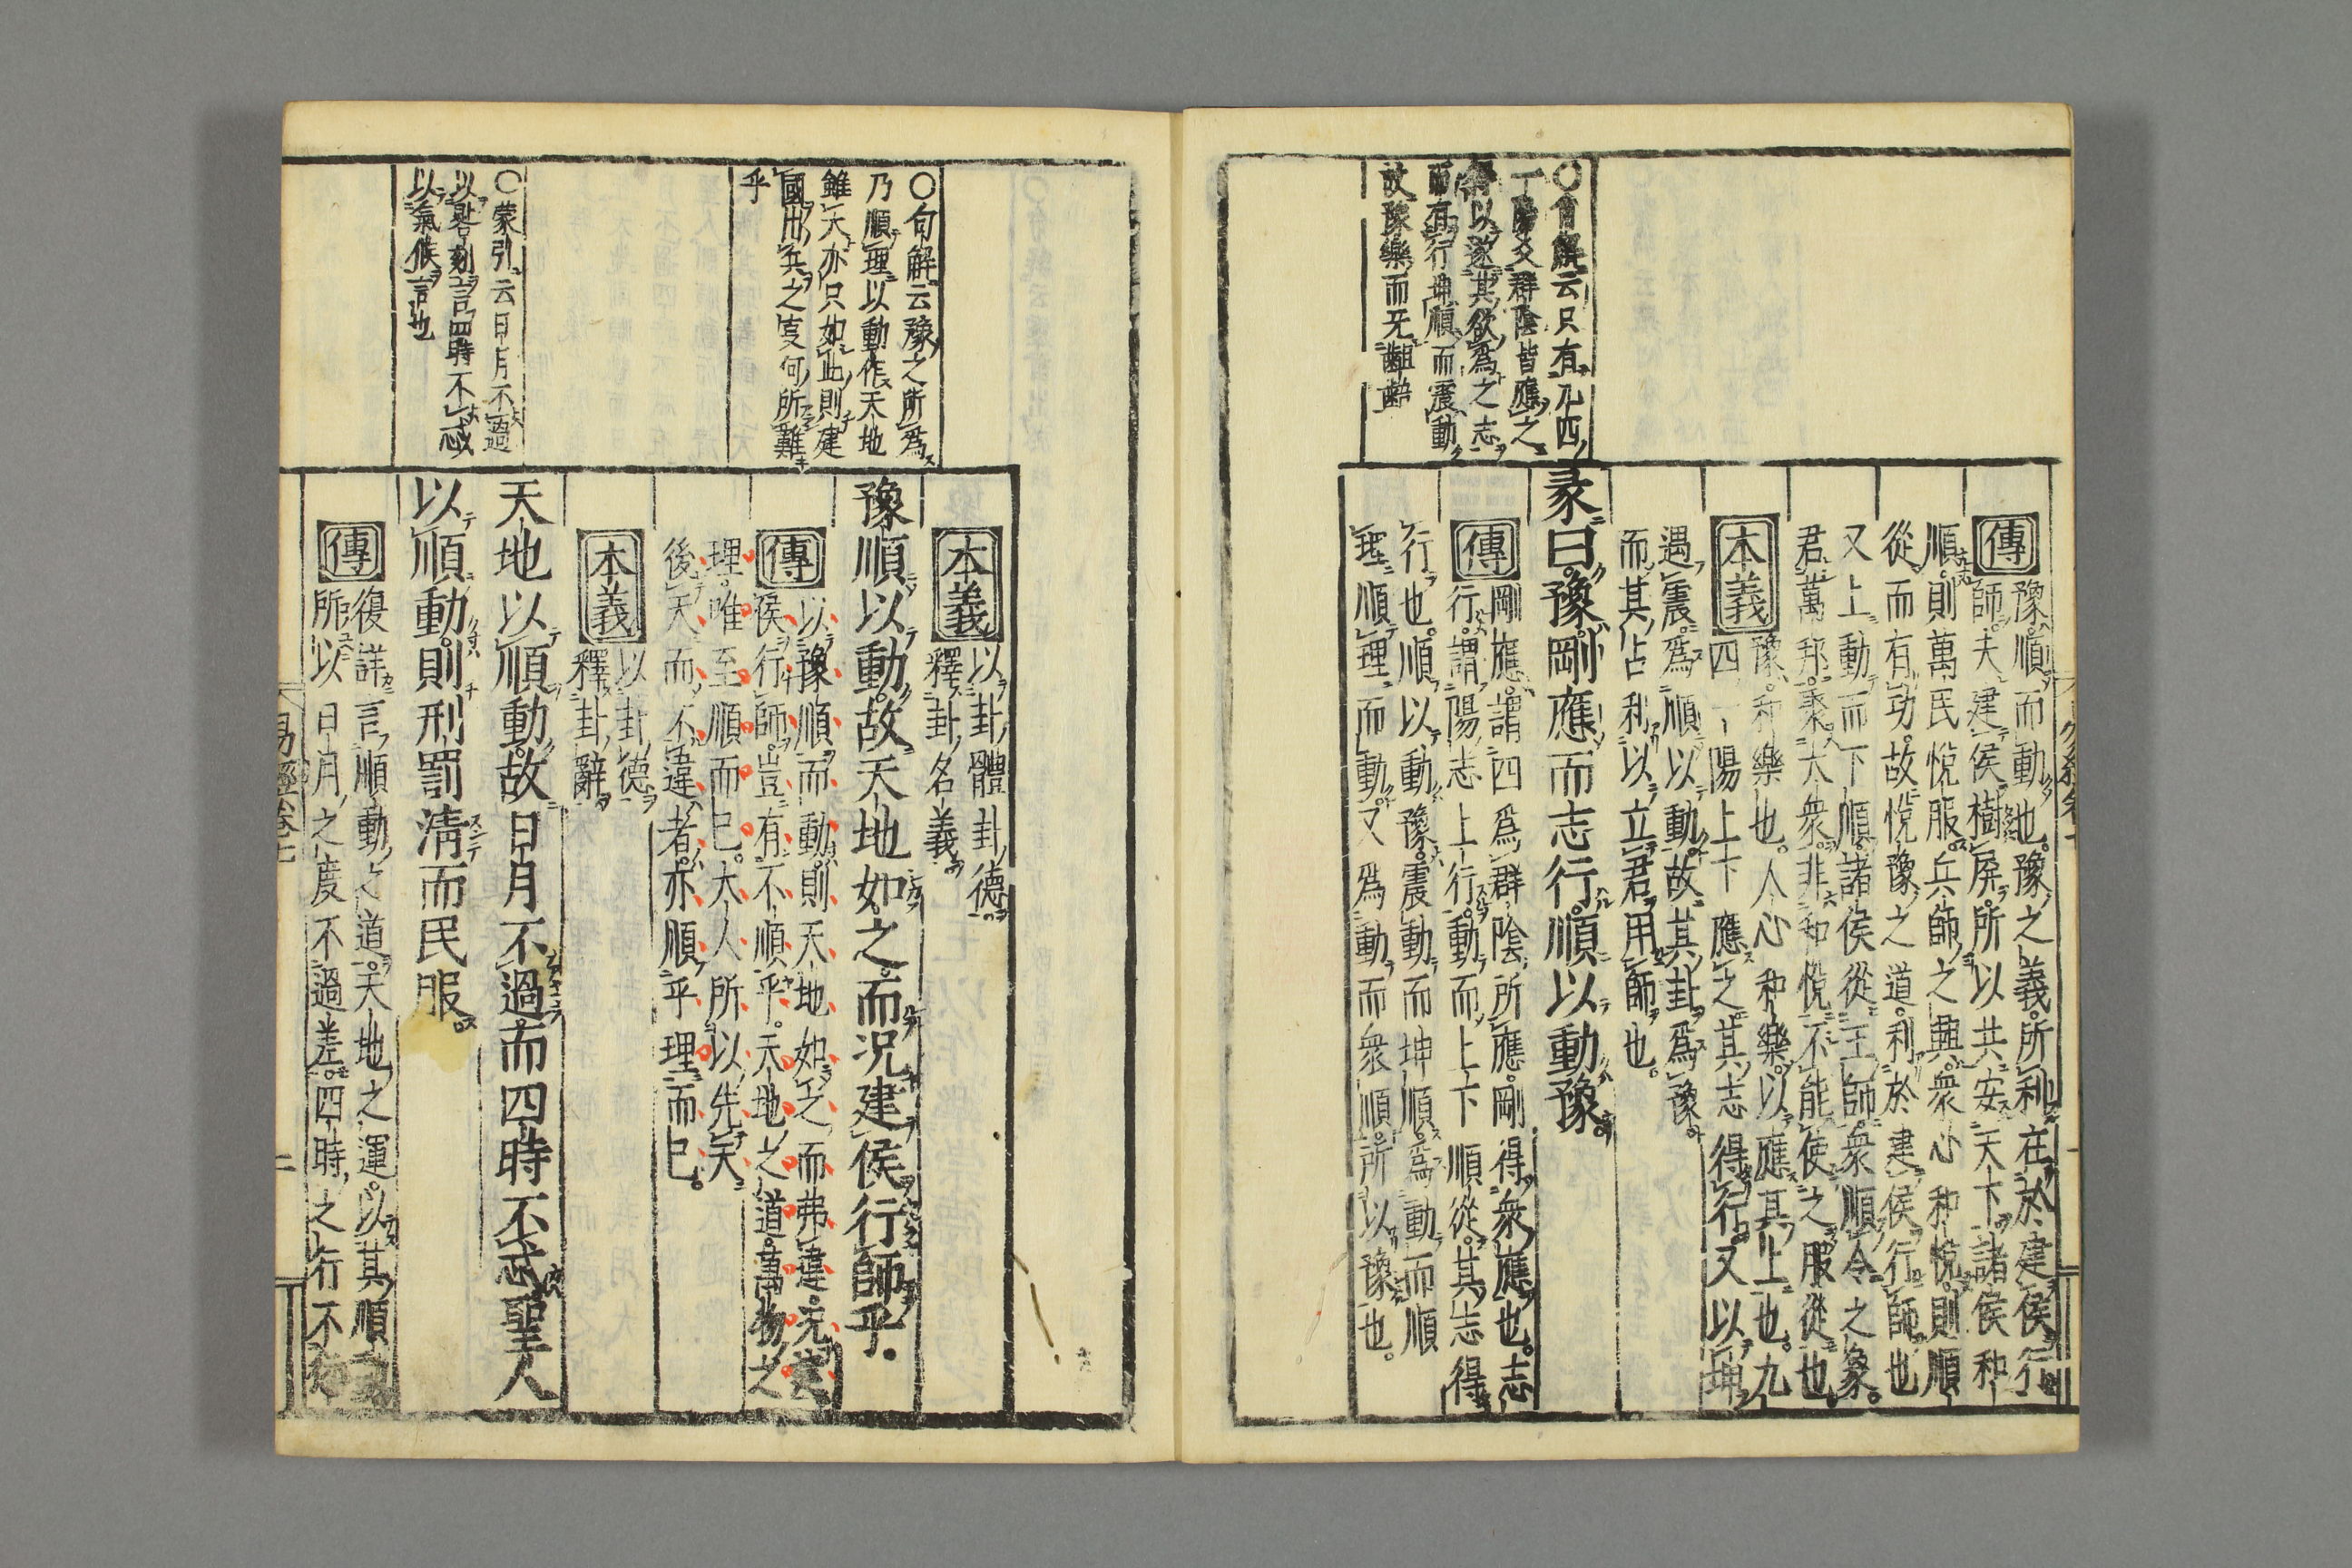 ○句解云只有九四
一陽爻群陰皆應之
得以遂其欲爲之志
而有行坤順而震動
故豫樂而无齟齬
傳
豫順而動也。豫之義。所利在於建侯行
師。夫建侯樹屏。所以共安天下。諸侯和
順。則萬民悅服。兵師之興。衆心和悅。則順
從而有功。故悅豫之道。利於建侯行師也
又上動而下順。諸侯從王。師衆順令之象。
君萬邦。聚大衆。非和悅不能使之服從也
本義
豫。和樂也。人心和樂。以應其上也。九
四一陽上下應之。其志得行。又以坤
遇震。爲順以動。故其卦爲豫。
而其占利以立君用師也。
彖曰。豫。剛應而志行。順以動豫。
傳
剛應。謂四爲群陰所應。剛得衆應也。志
行。謂陽志上行。動而上下順從。其志得
行也。順以動豫。震動而坤順。爲動而順
理。順理而動。又爲動而衆順。所以豫也。
○句解云豫之所爲
乃順理以動作天地
雖大亦只如此則建
國出兵之事何所難
乎
○蒙引云日月不過
以晷刻言四時不忒
以氣候言也
本義
以卦體卦德
釋卦名義
豫順以動。故天地如之。而況建侯行師乎。
傳
以豫順而動。則天地如之而弗違。況建
侯行師。豈有不順乎。天地之道。萬物之
理。唯至順而已。大人所以先天
後天而不違者。亦順乎理而已。
本義
以卦德
釋卦辭
天地以順動。故日月不過。而四時不忒。聖人
以順動。則刑罰淸而民服。
傳
復詳言順動之道。天地之運。以其順動
所以日月之度不過差。四時之行不
易經卷七
二